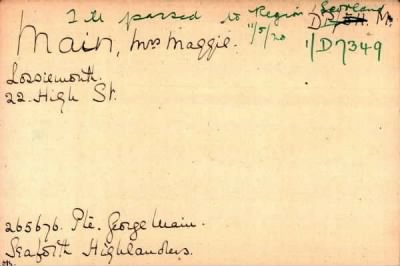 File passed to Region Scotland
11/5/20
Main, Mrs Maggie. M.
1/D7349
Lossiemouth.
22. High St.
265676. Pte. George Main.
Seaforth Highlanders.